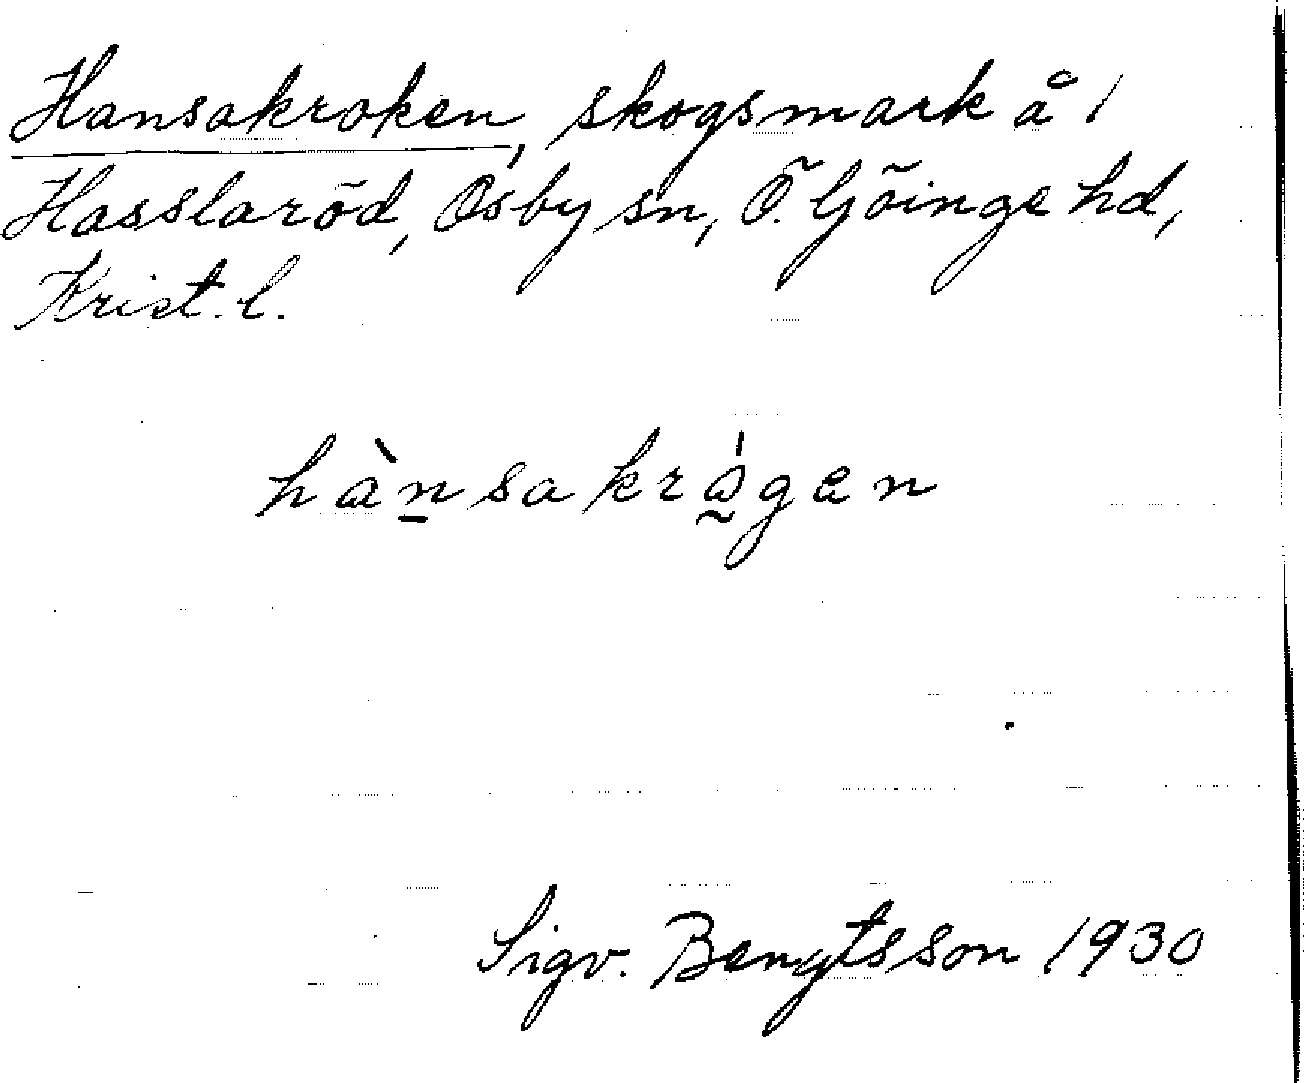 Hansakroken, skogsmark å 1
Hasslaröd, Osby sn, Ö. Göinge hd,
Krist. l.
hànsakrågen
Sigv. Bengtsson 1930